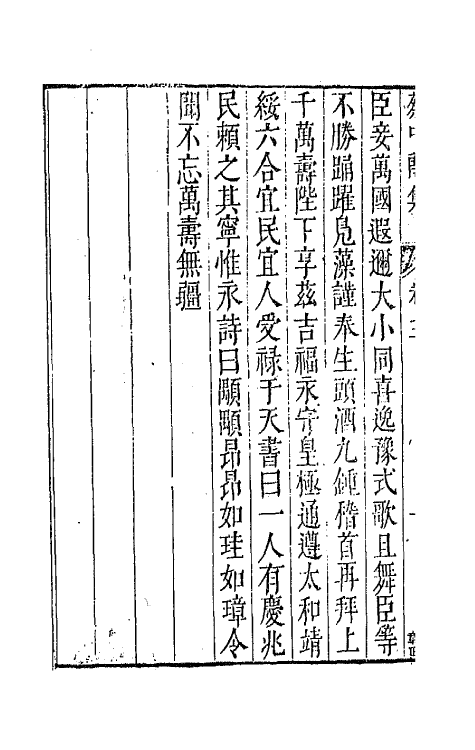 蔡中郎集 卷三
臣妾萬國遐邇大小同喜逸豫式歌且舞臣等
不勝踊躍鳧藻謹奉生頭酒九鍾稽首再拜上
千萬壽陛下享茲吉福永守皇極通遵太和靖
綏六合宜民宜人受祿于天書曰一人有慶兆
民賴之其寧惟永詩曰顒顒昂昂如珪如璋令
聞不忘萬壽無疆